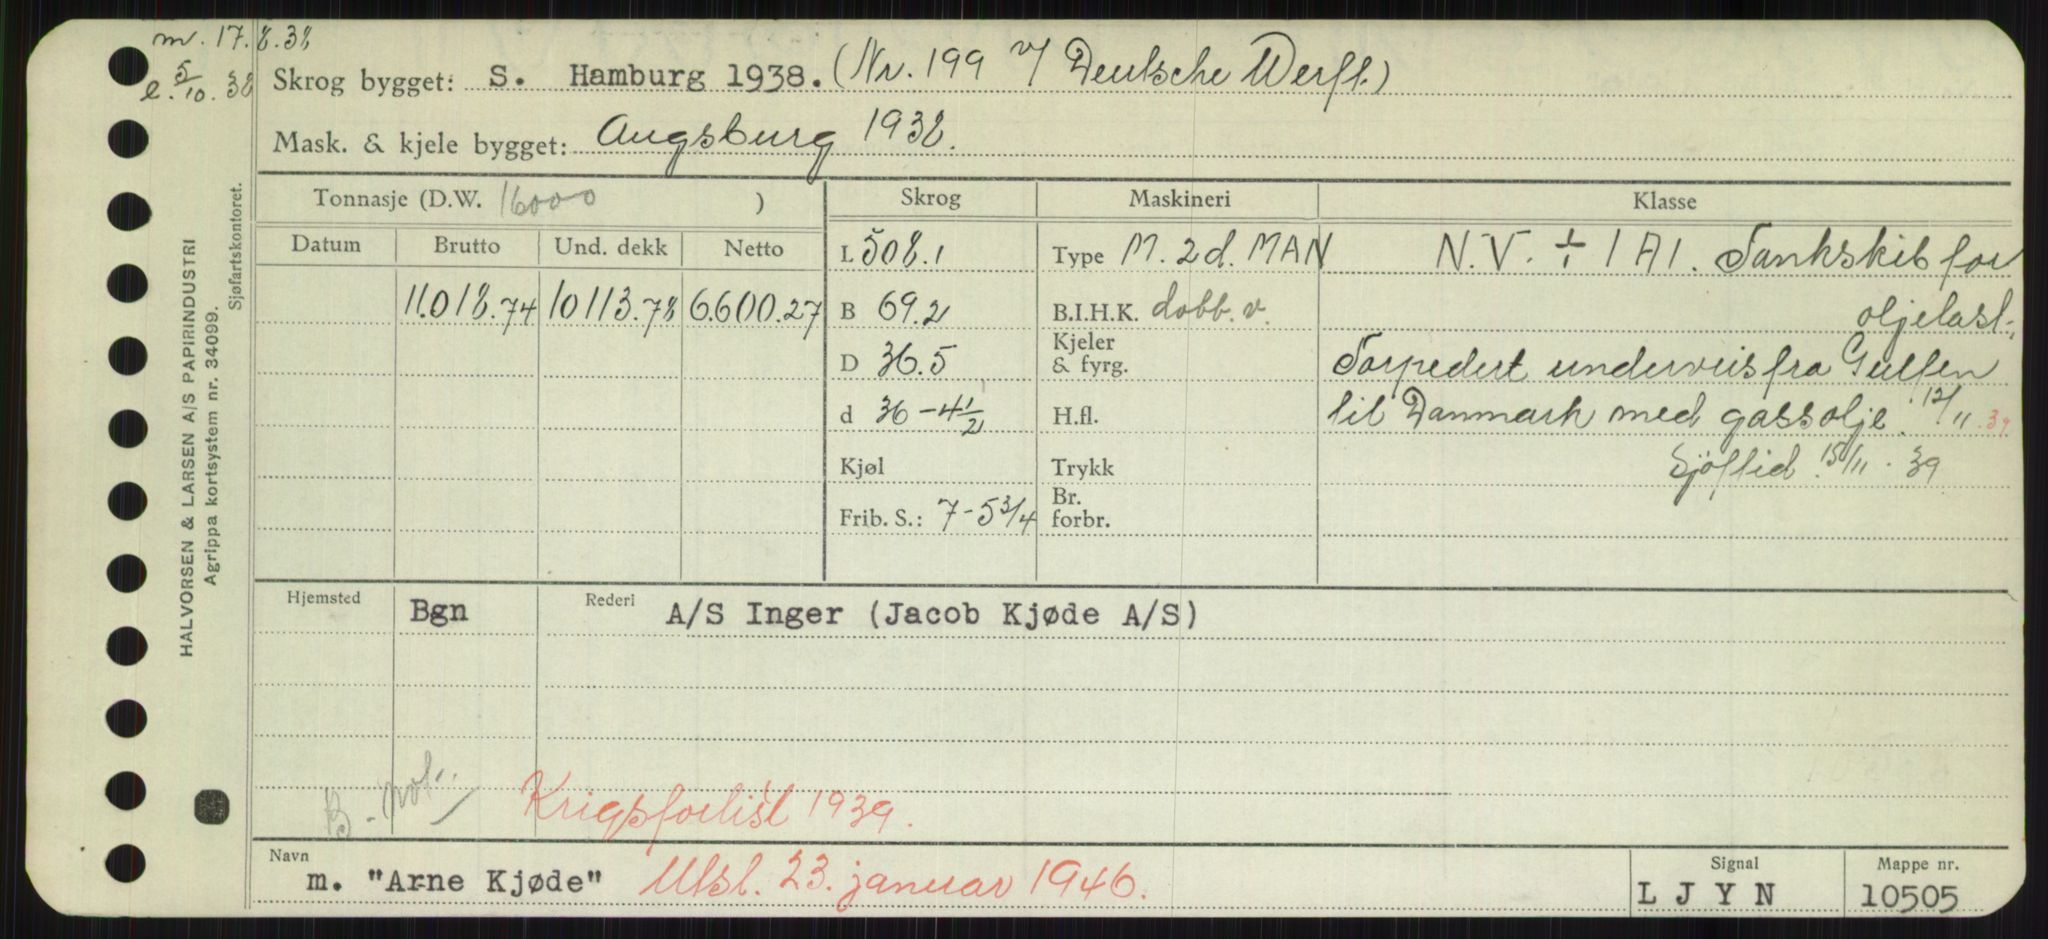 m. 17.8.38
e. 5/10. 38
Skrog bygget: S. Hamburg 1938. (Nr. 199 v/ Deutsche Werft.)
Mask. & kjele bygget: Augsburg 1938.
Tonnasje (D.W. 16000 )
Skrog
Maskineri
Klasse
Datum Brutto Und. dekk Netto
11.018.74 10113.78 6.600.27
L 508.1
B 69.2
D 36.5
d 36-4 1/2
Kjøl
Frib. S.: 7-5 3/4
Type M. 2 d. MAN
B.I.H.K. dobb. v.
Kjeler
& fyrg.
H.fl.
Trykk
Br.
forbr.
N.V. ∻ 1 A1. Tankskib for
oljelast.
Torpedert underveis fra Gulfen
til Danmark med gassolje. 12/11. 39
Sjöftid 15/11. 39
Hjemsted Bgn Rederi A/S Inger (Jacob Kjøde A/S)
B. not.
Krigsforlist 1939.
Navn
m. "Arne Kjøde" Utsl. 23. januar 1946.
Signal
L J Y N
Mappe nr.
10505
HALVORSEN & LARSEN A/S PAPIRINDUSTRI
Agrippa kortsystem nr. 34099.
Sjøfartskontoret.